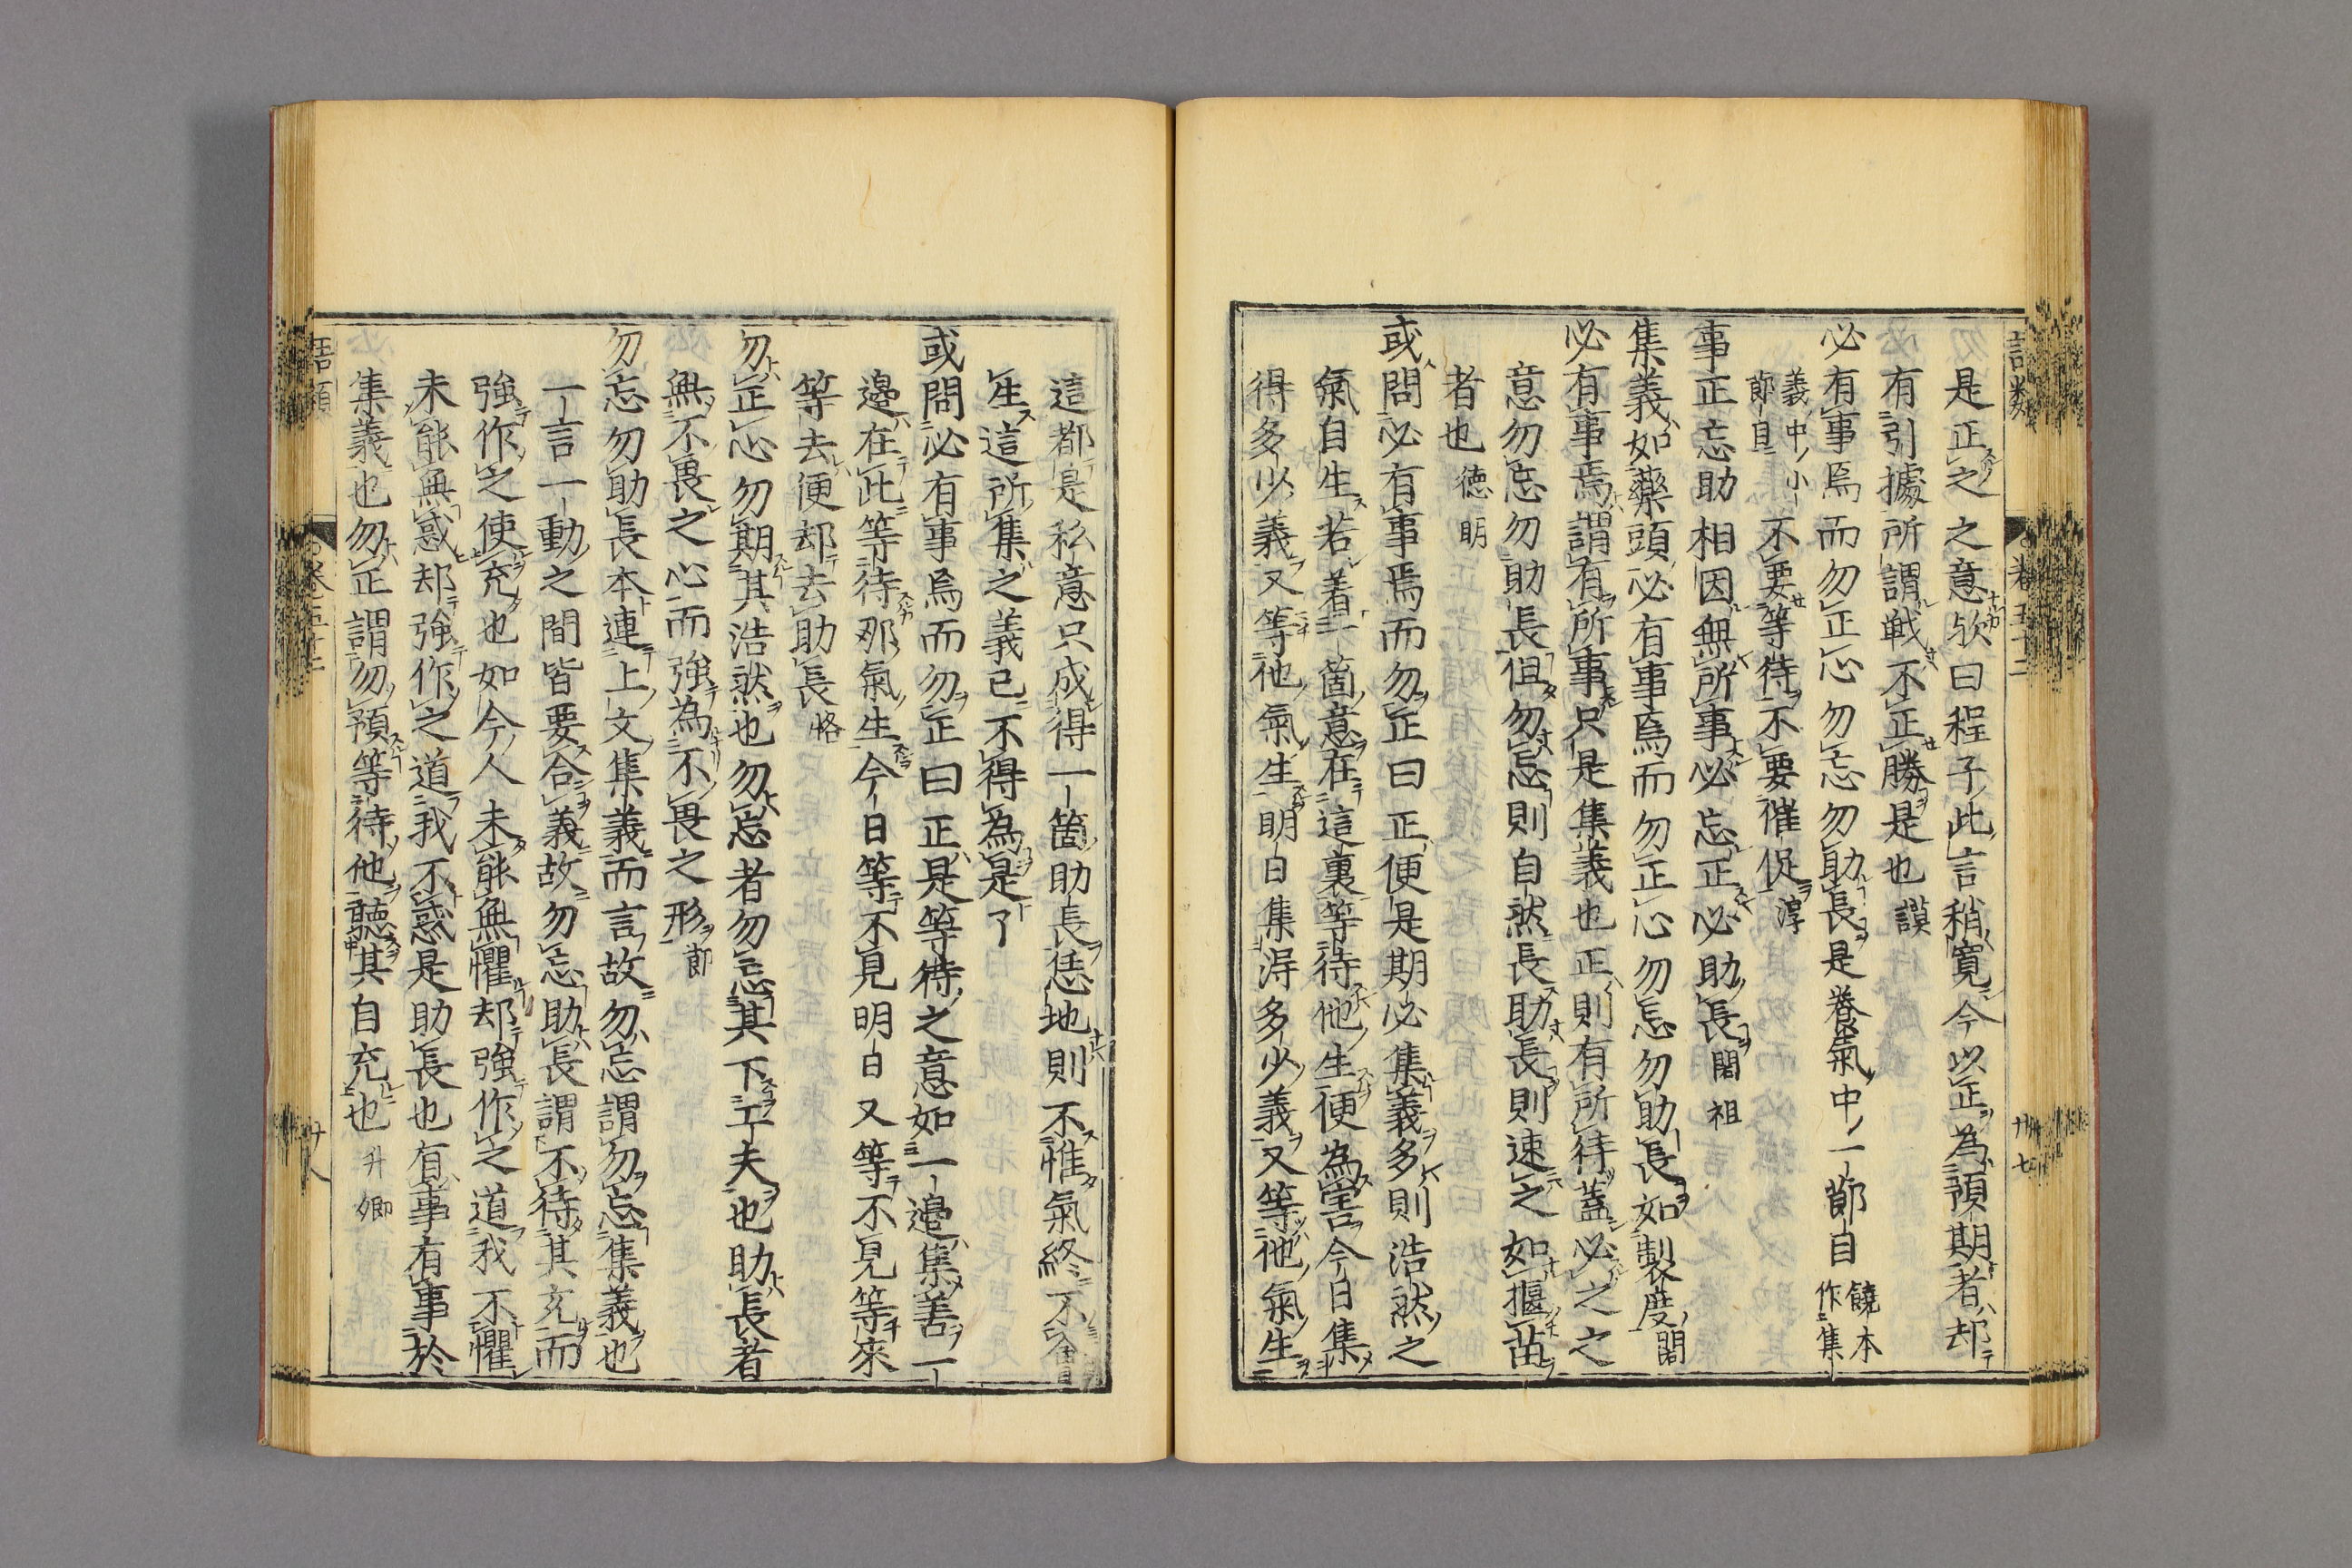 語類
卷五十二
廿七
是正之之意歟曰程子此言稍寬今以正為預期者却
有引據所謂戦不正勝是也 謨
必有事焉而勿正心勿忘勿助長是養氣中一節目 饒本作集
義中小節目 不要等待不要催促 淳
事正忘助相因無所事必忘正必助長 閎祖
集義如藥頭必有事焉而勿正心勿忘勿助長如製度 閎
必有事焉謂有所事只是集義也正則有所待蓋必之之
意勿忘勿助長但勿忘則自然長助長則速之如揠苗
者也 德明
或問必有事焉而勿正曰正便是期必集義多則浩然之
氣自生若著一箇意在這裏等待他生便為害今日集
得多少義又等他氣生明日集得多少義又等他氣生
這都是私意只成得一箇助長恁地則不惟氣終不會
生這所集之義已不得為是了
或問必有事焉而勿正曰正是等待之意如一邊集善一
邊在此等待那氣生今日等不見明日又等不見等來
等去便却去助長 恪
勿正心勿期其浩然也勿忘者勿忘其下工夫也助長者
無不畏之心而強為不畏之形 節
勿忘勿助長本連上文集義而言故勿忘謂勿忘集義也
一言一動之間皆要合義故勿忘助長謂不待其充而
強作之使充也如今人未能無懼却強作之道我不懼
未能無惑却強作之道我不惑是助長也有事有事於
集義也勿正謂勿預等待他聽其自充也 升卿
語類
卷五十二
廿八